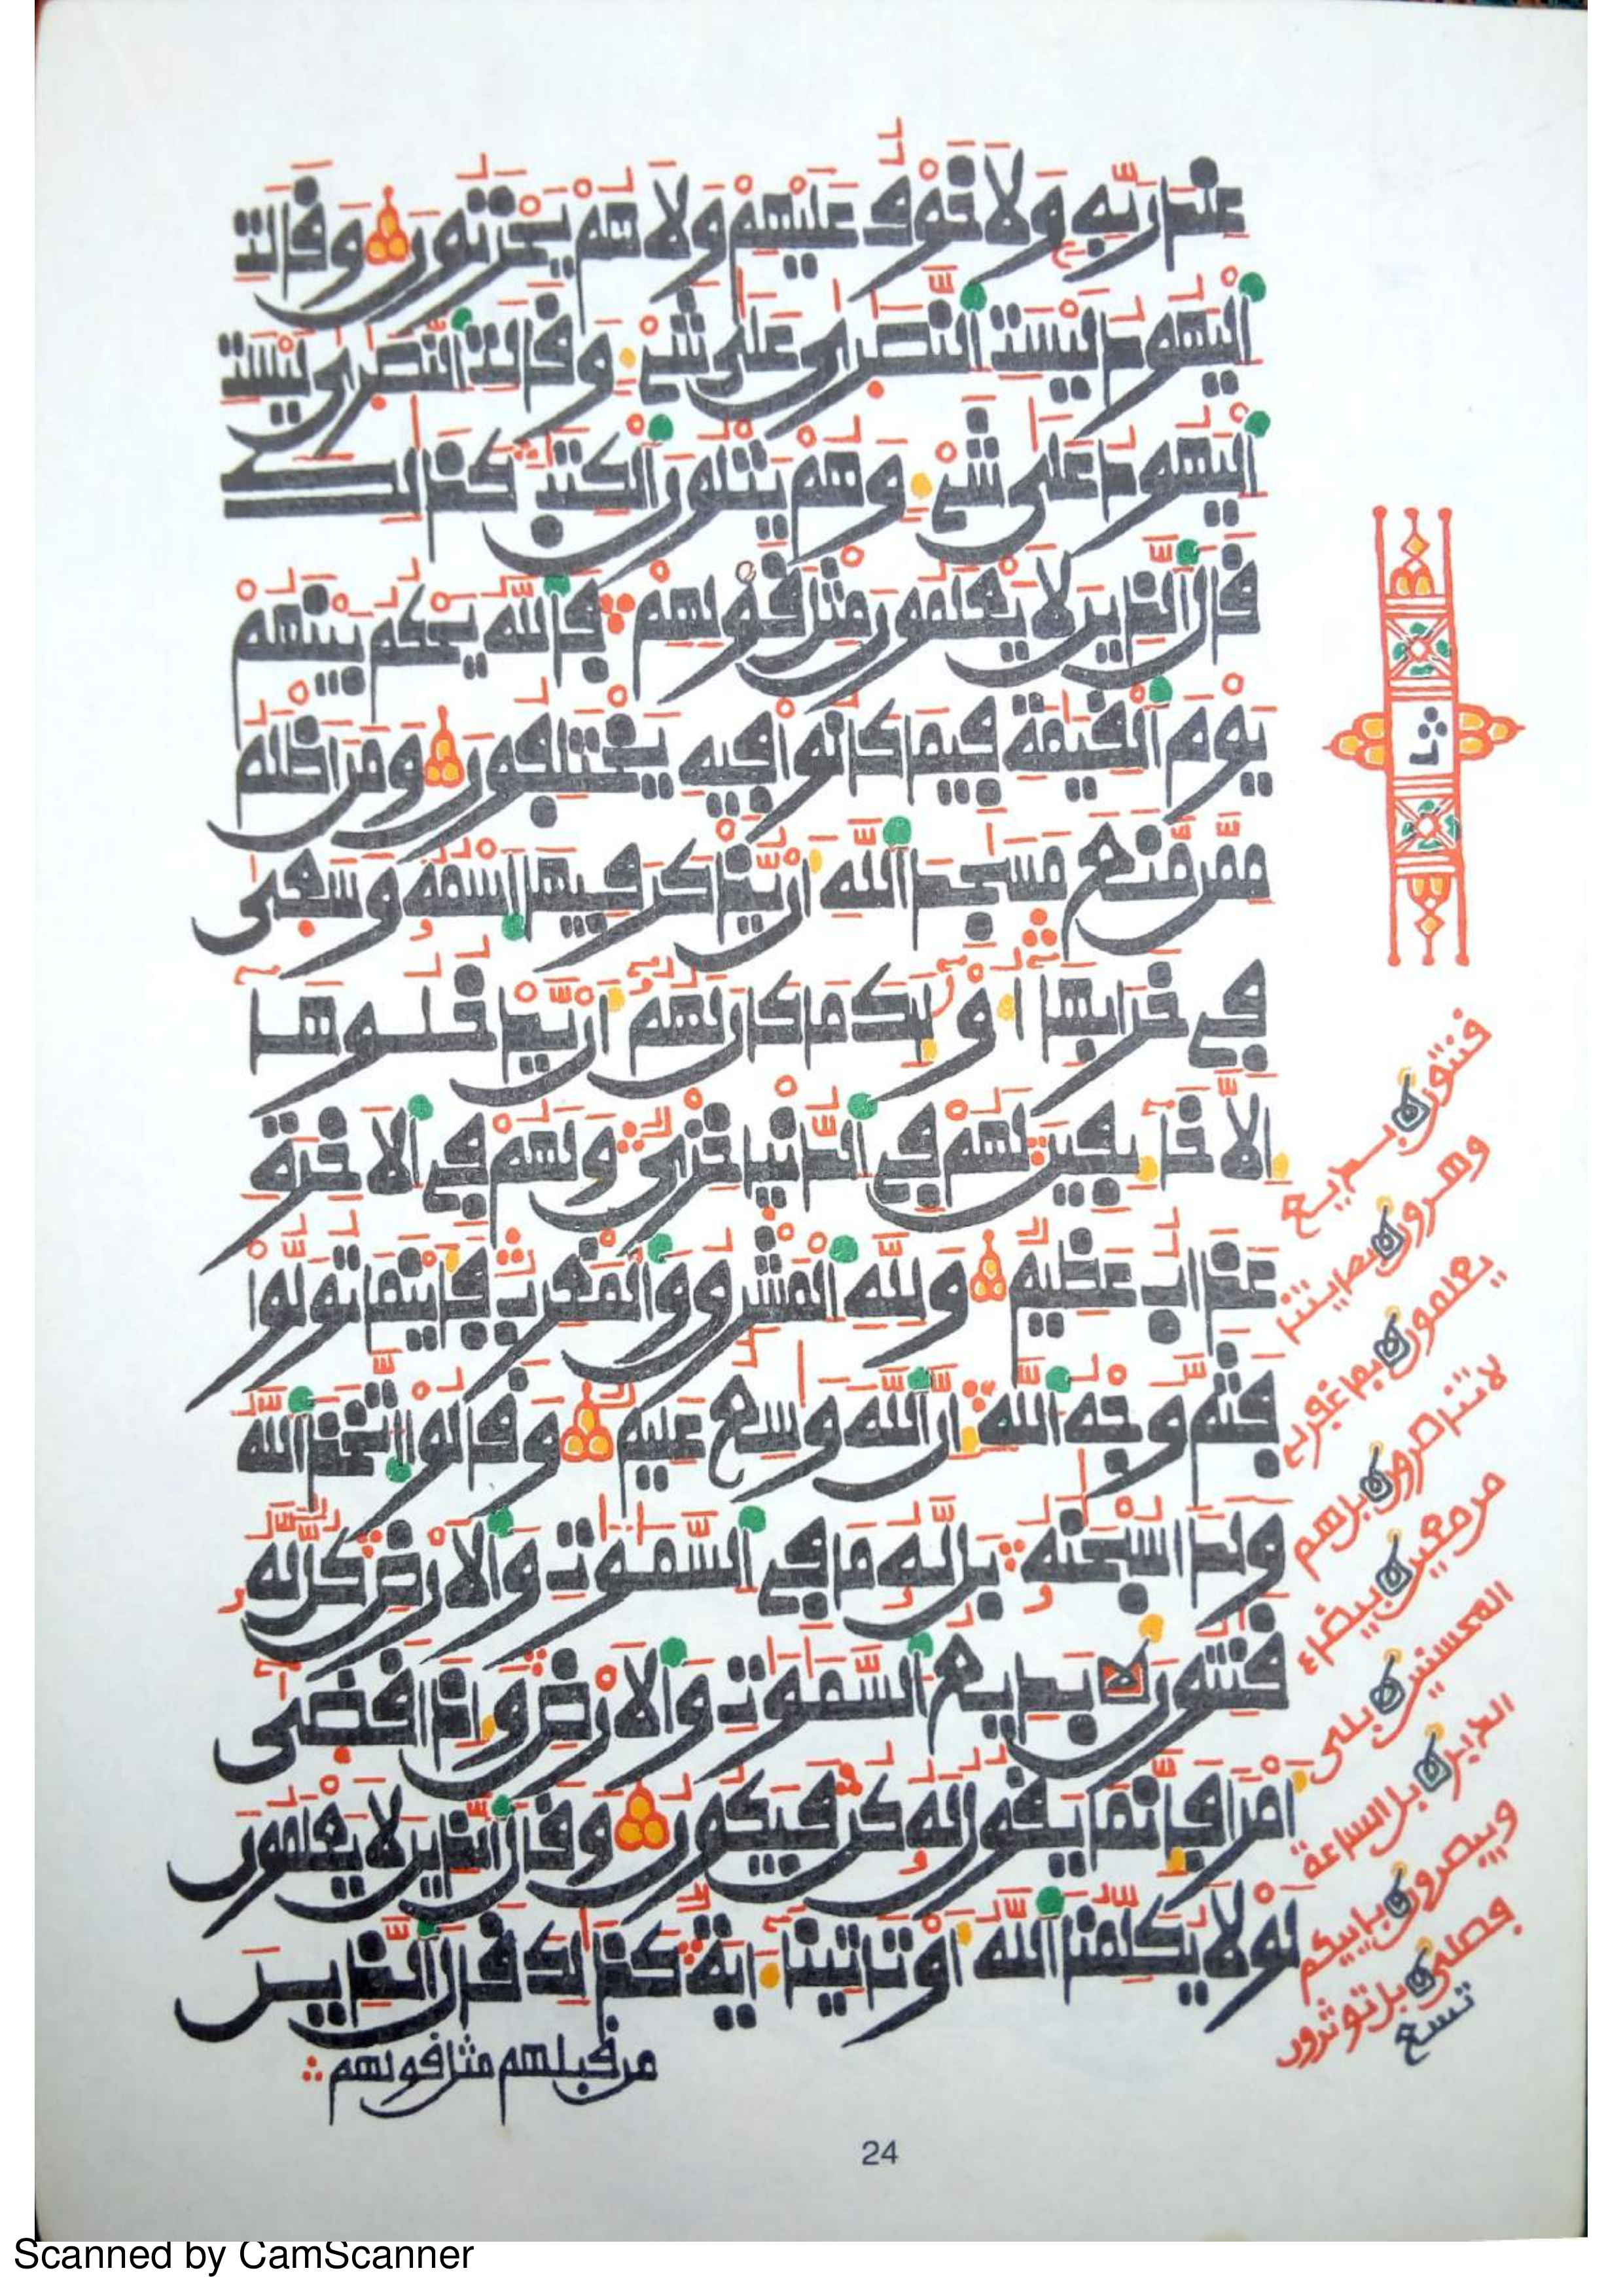 عند ربه ولا خوف عليهم ولا هم يحزنون وقالت
اليهود ليست النصرى على شىء وقالت النصرى ليست
اليهود على شىء وهم يتلون الكتب كذلك
قال الذين لا يعلمون مثل قولهم فالله يحكم بينهم
يوم القيمة فيما كانوا فيه يختلفون ومن اظلم
ممن منع مسجد الله ان يذكر فيها اسمه وسعى
في خرابها اوليك ما كان لهم ان يدخلوها
الا خايفين لهم في الدنيا خزى ولهم في الاخرة
عذاب عظيم ولله المشرق والمغرب فاينما تولوا
فثم وجه الله ان الله وسع عليم وقالوا اتخذ الله
ولدا سبحنه بل له ما في السموت والارض كل له
قنتون بديع السموت والارض واذا قضى
امرا فانما يقول له كن فيكون وقال الذين لا يعلمون
لولا يكلمنا الله او تاتينا اية كذلك قال الذين
من قبلهم مثل قولهم
ثما
قنتون بديع
يعلمون بما غفر لي
لا تنصرون بل هم
من معين بيضاء
المحسنين بلى
بل الساعة
ويبصرون باييكم
فصلى بل توثرون
تسع
24
Scanned by CamScanner